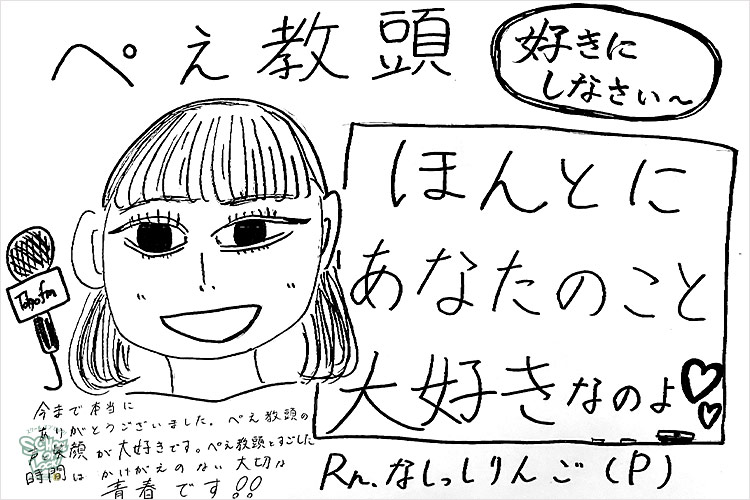 ぺぇ教頭
好きに
しなさぃ～
ほんとに
あなたのこと
大好きなのよ♡♡
Tokyo fm
今まで本当に
ありがとうございました。ぺぇ教頭の
笑顔が大好きです。ぺぇ教頭とすごした
時間はかけがえのない大切な
青春です!!
Rn.なしっしりんご(P)